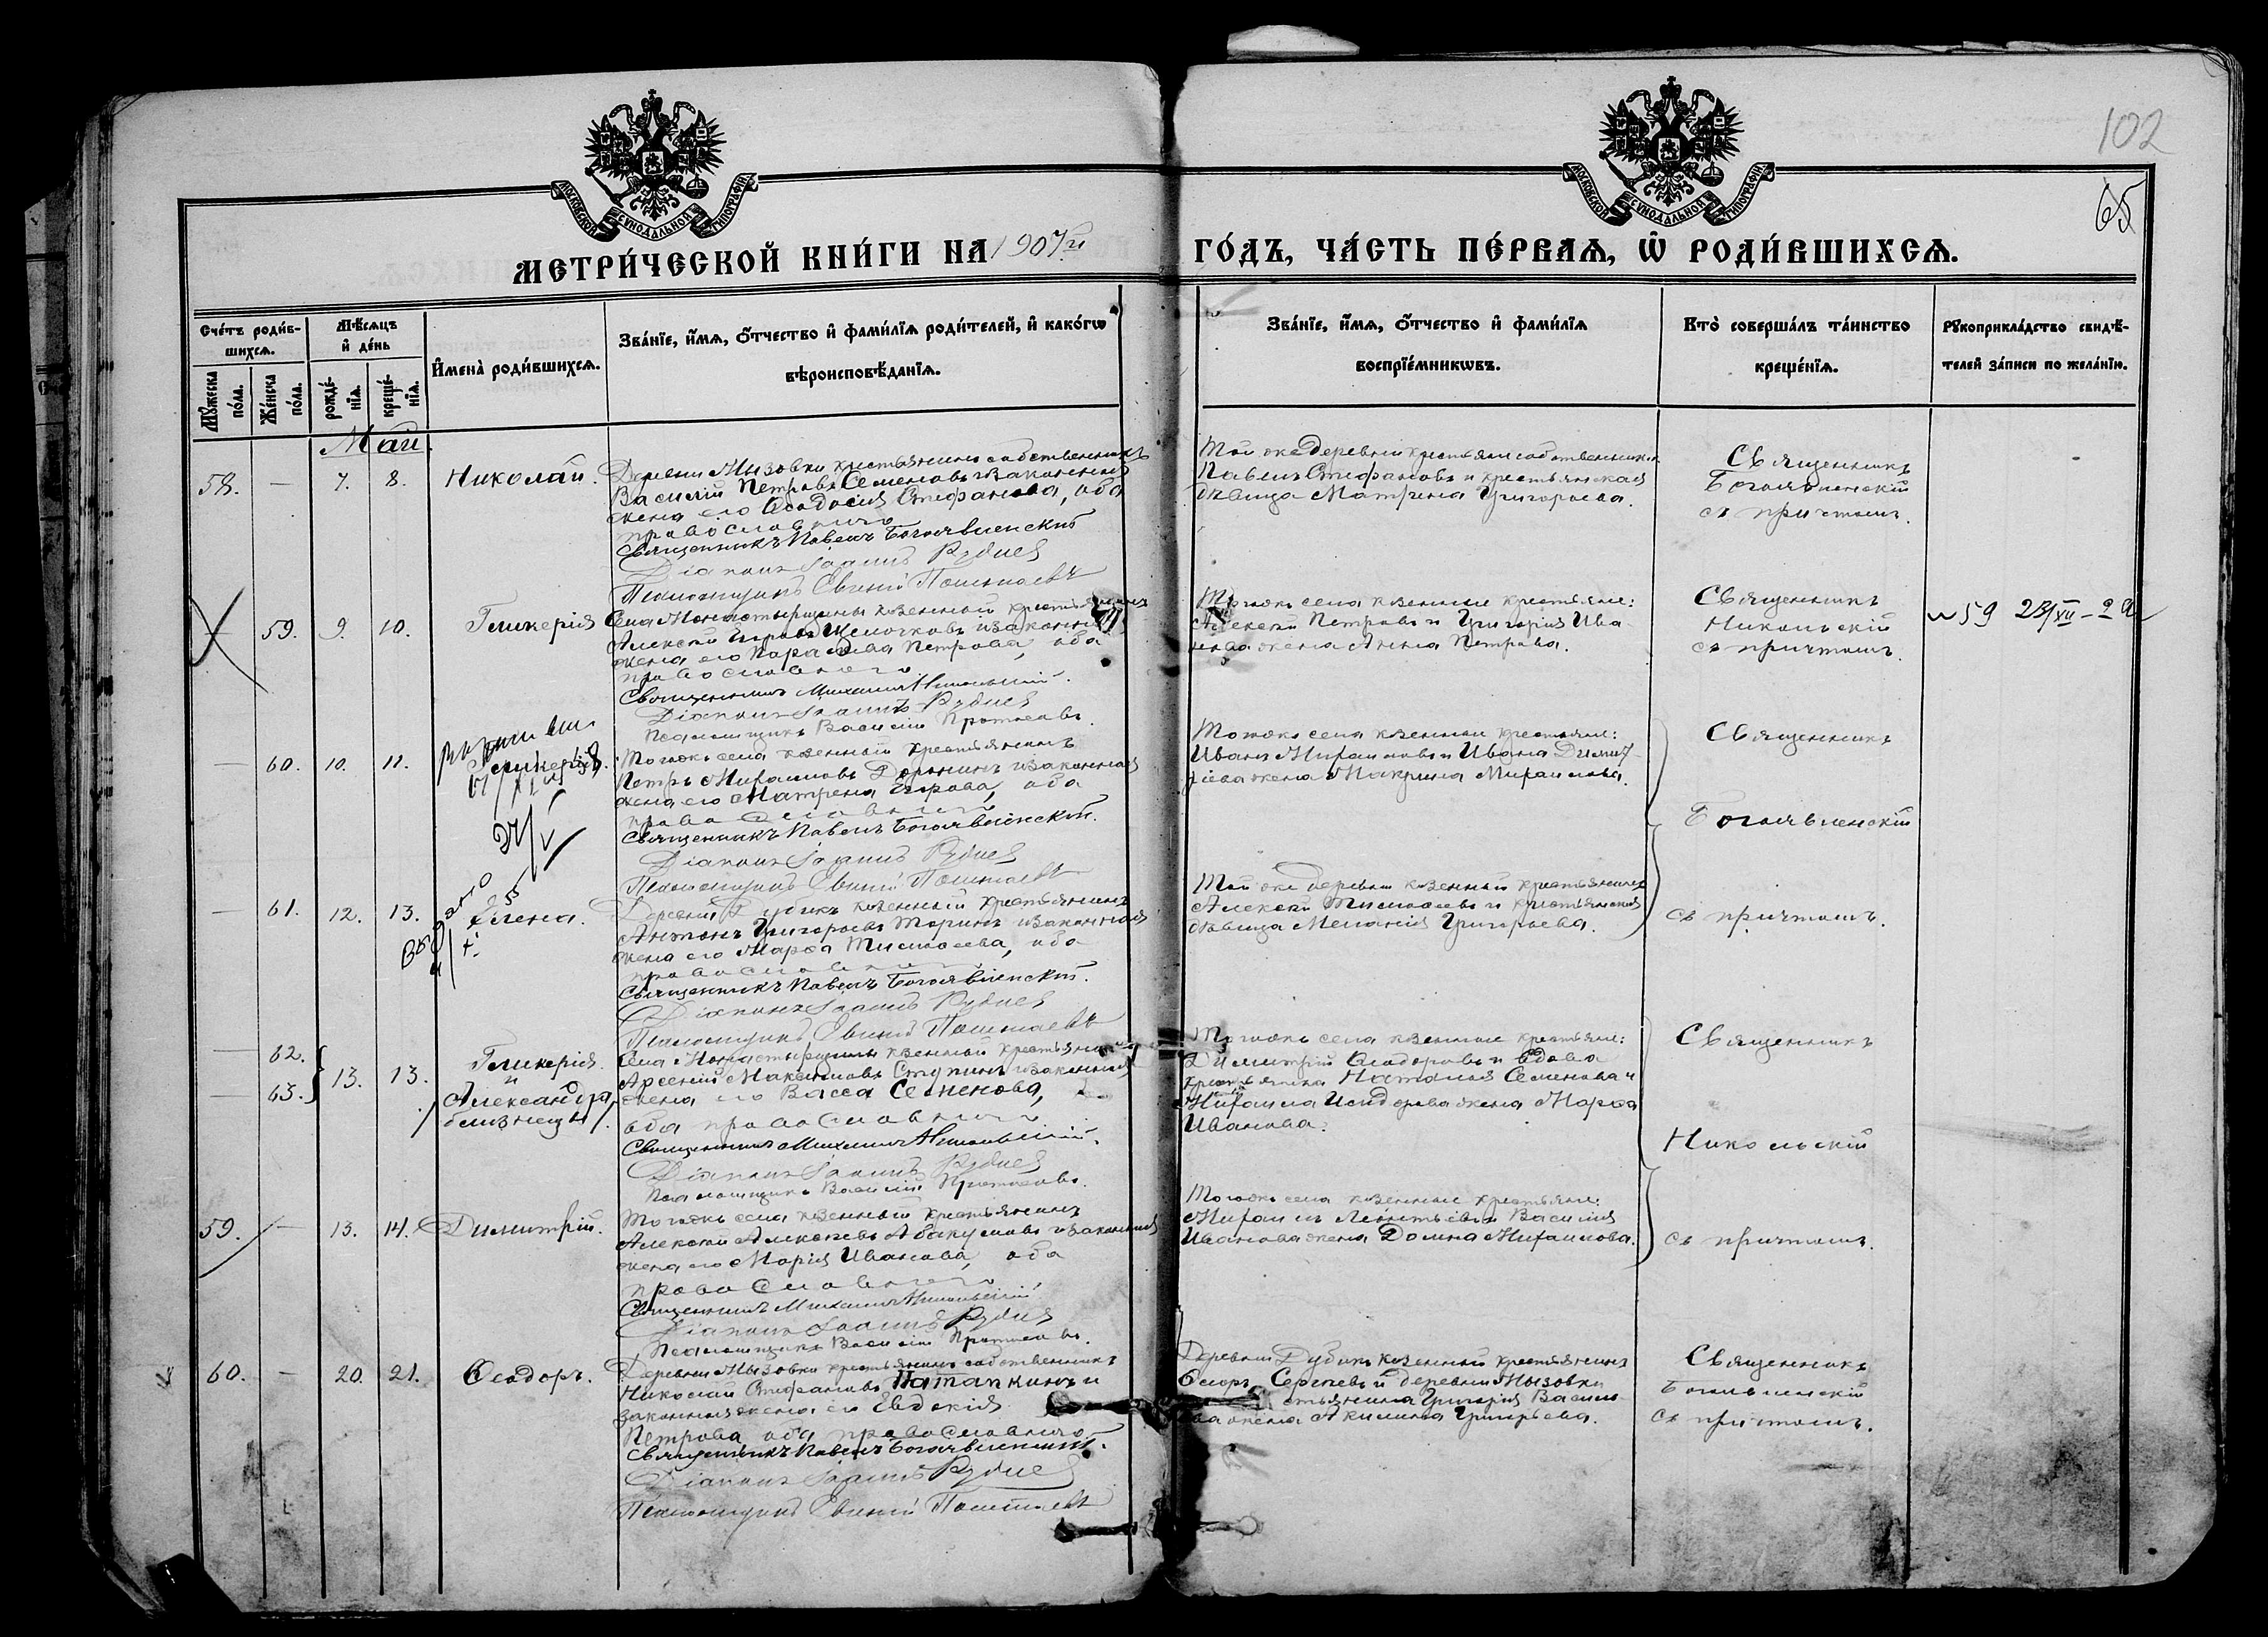 102
65
МОСКОВСКОЙ СѴНОДАЛЬНОЙ ТИПОГРАФІИ
МОСКОВСКОЙ СѴНОДАЛЬНОЙ ТИПОГРАФІИ
МЕТРИ́ЧЕСКОЙ КНИ́ГИ НА 1907й
ГО́ДЪ, ЧА́СТЬ ПЕ́РВАѦ, Ѡ҆ РОДИ́ВШИХСѦ.
Сче́тъ роди́в-
шихсѧ.
Мꙋ́жеска по́ла.
Же́нска по́ла.
Мѣ́сѧцъ
и҆ де́нь
рожде́-
нїѧ.
креще́-
нїѧ.
И҆мена̀ роди́вшихсѧ.
Зва́нїе, и҆́мѧ, ѻ҆́тчество и҆ фами́лїѧ роди́телей, и҆ како́гѡ
вѣроисповѣ́данїѧ.
Зва́нїе, и҆́мѧ, ѻ҆́тчество и҆ фами́лїѧ
воспрїе́мникѡвъ.
Кто̀ соверша́лъ та́инство
креще́нїѧ.
Рꙋкоприкла́дство свидѣ́-
телей за́писи по жела́нїю.
Май.
58. — 7. 8. Николай.
Деревни Мызовки крестьянинъ собственникъ
Василій Петровъ Семеновъ и законная
жена его Ѳеодосія Стефанова, оба
православнаго
Священникъ Павелъ Богоявленскій
Діаконъ Іоаннъ Рудневъ
Псаломщикъ Евгеній
Той же деревни крестьяне собственники
Павелъ Стефановъ и крестьянская
дѣвица Матрена Григорьева.
Священникъ
Богоявленскій
съ причтомъ.
— 59. 9. 10. Гликерія
Села Монастырщины казенный крестьянинъ
Алексѣй Егоровъ Щелочковъ и законная
жена его Параскева Петрова, оба
православнаго
Священникъ Михаилъ Никольскій.
Діаконъ Іоаннъ Рудневъ
Псаломщикъ Василій Протасовъ.
Того же села казенные крестьяне:
Алексѣй Петровъ и Григорія Ива-
нова жена Анна Петрова.
Священникъ
Никольскій
съ причтомъ.
№ 59 23/XII
— 60. 10. 11. Гликерія.
27/V
Того же села казенный крестьянинъ
Петръ Михайловъ Доронинъ и законная
жена его Матрена Егорова, оба
православнаго
Священникъ Павелъ Богоявленскій.
Діаконъ Іоаннъ Рудневъ
Псаломщикъ Евгеній
Того же села казенные крестьяне:
Иванъ Михайловъ и Ивана Димит-
ріева жена Макрина Михайлова.
Священникъ
Богоявленскій
съ причтомъ.
— 61. 12. 13. Елена.
Деревни Дубикъ казенный крестьянинъ
Антонъ Григорьевъ Торинъ и законная
жена его Марѳа Тимоѳеева, оба
православнаго
Священникъ Павелъ Богоявленскій.
Діаконъ Іоаннъ Рудневъ
Псаломщикъ Евгеній
Той же деревни казенный крестьянинъ
Алексѣй Тимоѳеевъ и крестьянская
дѣвица Меланія Григорьева.
— 62.
— 63. 13. 13. Гликерія
и
Александра,
близнецы.
Села Монастырщины казенный крестьянинъ
Арсеній Максимовъ Ступинъ и законная
жена его Васса Семенова,
оба православнаго
Священникъ Михаилъ Никольскій.
Діаконъ Іоаннъ Рудневъ
Псаломщикъ Василій Протасовъ.
Того же села казенные крестьяне:
Димитрій Ѳеодоровъ и вдова
крестьянка Наталія Семенова и
Михаила Исидорова жена Марѳа
Иванова.
Священникъ
Никольскій
съ причтомъ.
59. — 13. 14. Димитрій.
Того же села казенный крестьянинъ
Алексѣй Алексѣевъ Абакумовъ и законная
жена его Марія Иванова, оба
православнаго
Священникъ Михаилъ Никольскій
Діаконъ Іоаннъ Рудневъ
Псаломщикъ Василій Протасовъ.
Того же села казенные крестьяне:
Михаилъ Леонтьевъ и Василія
Иванова жена Домна Михайлова.
60. — 20. 21. Ѳеодоръ.
Деревни Мызовки крестьянинъ собственникъ
Николай Стефановъ Патапкинъ и
законная жена его Евдокія
Петрова, оба православнаго
Священникъ Павелъ Богоявленскій.
Діаконъ Іоаннъ Рудневъ
Псаломщикъ Евгеній
Деревни Дубикъ казенный крестьянинъ
Сергѣевъ и деревни Мызовки
Григорія Василь-
ева жена Акилина Григорьева.
Священникъ
Богоявленскій
съ причтомъ.